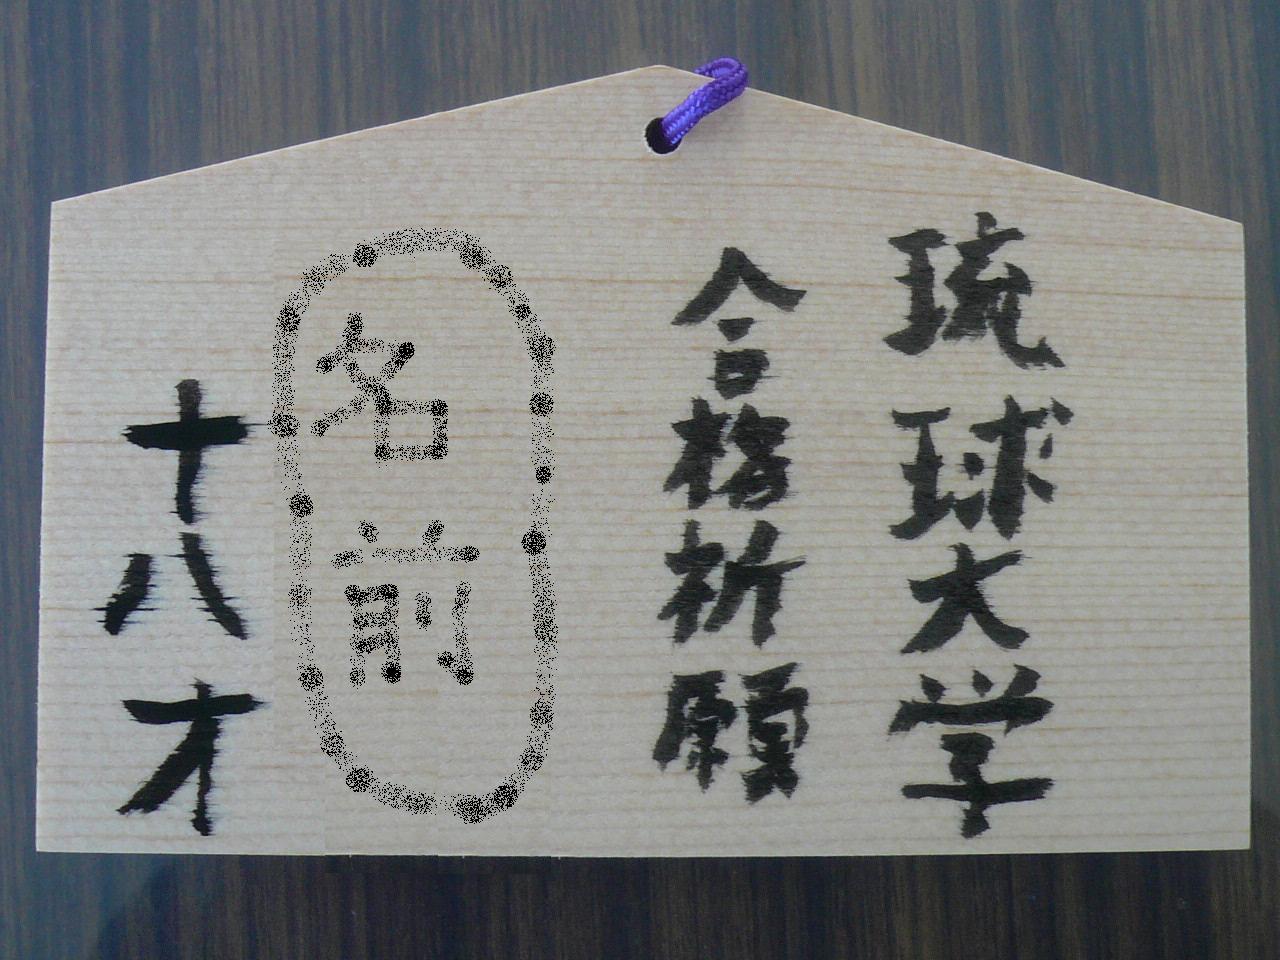 琉球大学
合格祈願
名前
十八才